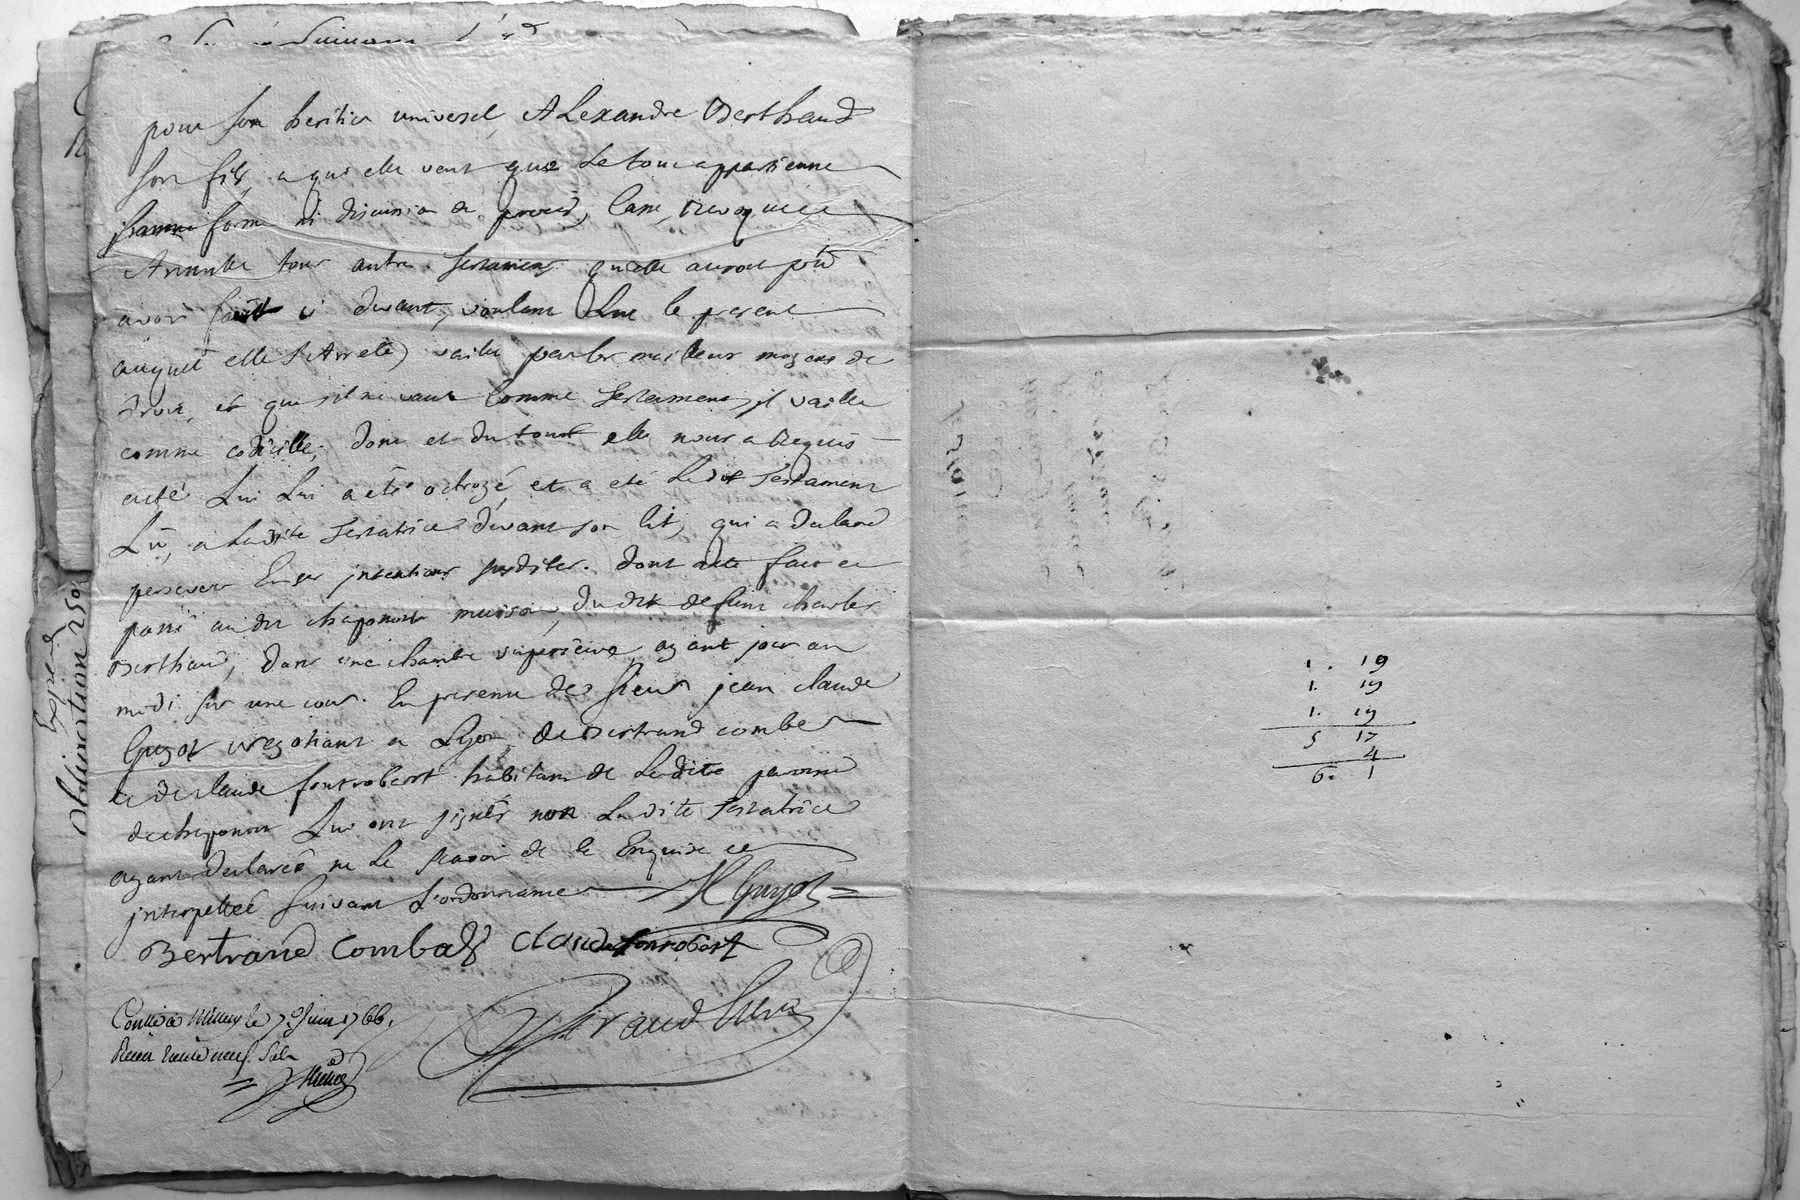 pour son heritier universel, Alexandre Berthaud
son fils, a qui elle veut que le tout appartienne
forme ni discussion de procès, Casse, Revoque et
Annulle tous autre testament quelle auroit pû
avoir fait ci devant, voulant que le present
auquel elle s'Arrete) vaille par les meilleurs moyens de
droit, et que s'il ne vaut Comme testament, il vaille
comme codicille; dont et du tout elle nous a Requis
acte Qui Lui a été octroyé, et a été Ledit testament
Lû, a Ladite testatrice devant son lit, qui a declaré
perseverer En ses intentions susdites. Dont acte fait et
passé audit chaponost maison, dudit defunt charles
Berthaud, dans une chambre superieure, ayant jour au
midi sur une cour. En presence des sieurs jean claude
Guyot negotiant a Lyon, de Bertrand combe
et de claude fontrobert habitant de Ladite paroisse
de chaponost Qui ont signés non Ladite testatrice
ayant declarée ne le scavoir de ce Enquise et
interpellée suivant L'ordonnance Guyot
Bertrand Combalz Claude fontrobert
Conllé à Millery le 7e Juin 1766.
Reçu trente neuf sols
Expedié
1. 19
1. 19
1. 19
5 17
4
6. 1